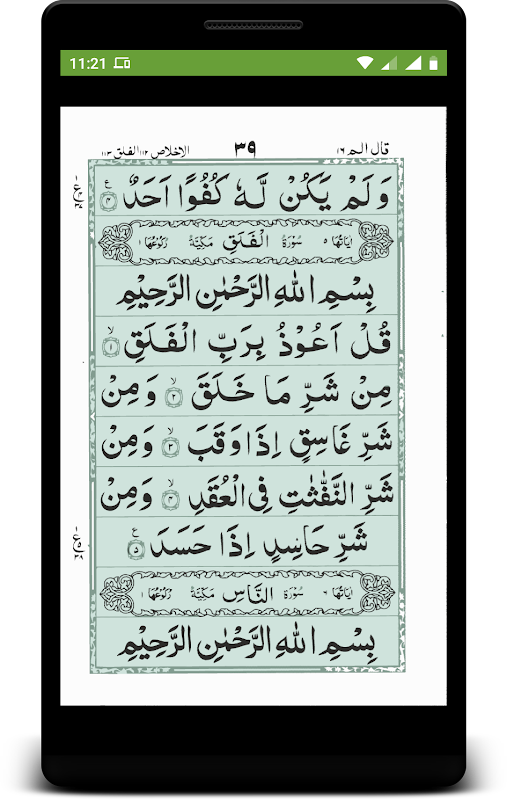 11:21
قال الم ١٦ ٣٩ الاخلاص ١١٢ الفلق ١١٣
وَلَمْ يَكُنْ لَّهٗ كُفُوًا اَحَدٌ ۝۴
اٰيَاتُهَا ٥ سُوْرَةُ الْفَلَقِ مَكِّيَّةٌ رُكُوْعُهَا ١
بِسْمِ اللهِ الرَّحْمٰنِ الرَّحِيْمِ
قُلْ اَعُوْذُ بِرَبِّ الْفَلَقِ ۝۱
مِنْ شَرِّ مَا خَلَقَ ۝۲ وَمِنْ
شَرِّ غَاسِقٍ اِذَا وَقَبَ ۝۳ وَمِنْ
شَرِّ النَّفّٰثٰتِ فِى الْعُقَدِ ۝۴ وَمِنْ
شَرِّ حَاسِدٍ اِذَا حَسَدَ ۝۵
اٰيَاتُهَا ٦ سُوْرَةُ النَّاسِ مَكِّيَّةٌ رُكُوْعُهَا ١
بِسْمِ اللهِ الرَّحْمٰنِ الرَّحِيْمِ